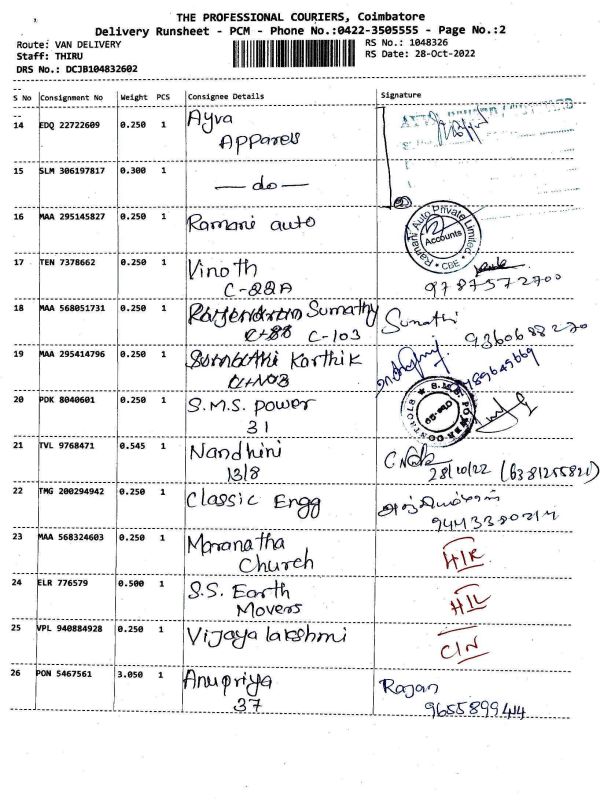 THE PROFESSIONAL COURIERS, Coimbatore
Delivery Runsheet - PCM - Phone No.:0422-3505555 - Page No.:2
Route: VAN DELIVERY RS No.: 1048326
Staff: THIRU RS Date: 28-Oct-2022
DRS No.: DCJB104832602
S No Consignment No Weight PCS Consignee Details Signature
14 EDQ 22722609 0.250 1 Ayva
Apparels
15 SLM 306197817 0.300 1 — do —
16 MAA 295145827 0.250 1 Ramani auto
Ramani Auto Private Limited
Accounts
CBE
17 TEN 7378662 0.250 1 Vinoth
C-22A 9787572700
18 MAA 568051731 0.250 1 Sumathy Sumathi
C-103 9360688270
19 MAA 295414796 0.250 1 Karthik
9789649669
20 PDK 8040601 0.250 1 S.M.S. power
31
S.M.S. POWER CONTROLS
21 TVL 9768471 0.545 1 Nandhini
13/8 28/10/22 (6381255821)
22 TMG 200294942 0.250 1 Classic Engg
23 MAA 568324603 0.250 1 Maranatha
Church H/R
24 ELR 776579 0.500 1 S.S. Earth
Movers H/L
25 VPL 940884928 0.250 1 Vijaya lakshmi C/N
26 PON 5467561 3.050 1 Anupriya Rajan
37 9655899444